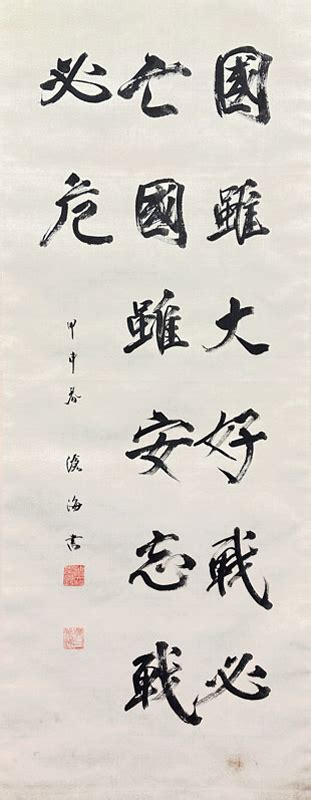 國雖大好戦必
亡國雖安忘戦
必危
甲申春 海書